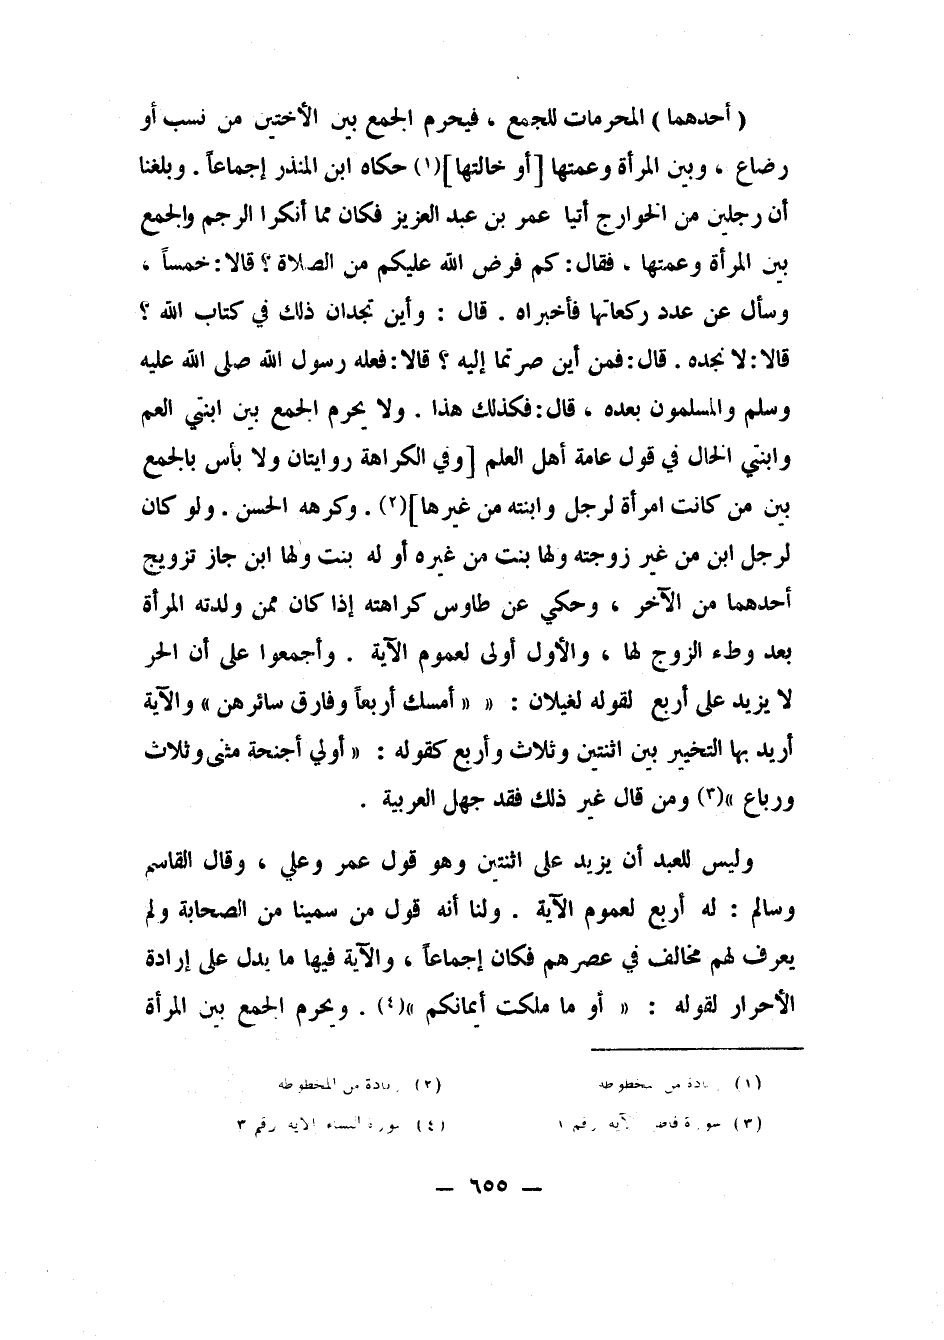 ( أحدهما ) المحرمات للجمع ، فيحرم الجمع بين الأختين من نسب أو
رضاع ، وبين المرأة وعمتها [أو خالتها](١) حكاه ابن المنذر إجماعاً . وبلغنا
أن رجلين من الخوارج أتيا عمر بن عبد العزيز فكان مما أنكرا الرجم والجمع
بين المرأة وعمتها . فقال: كم فرض الله عليكم من الصلاة ؟ قالا: خمساً ،
وسأل عن عدد ركعاتها فأخبراه . قال : وأين تجدان ذلك في كتاب الله ؟
قالا: لا نجده . قال: فمن أين صرتما إليه ؟ قالا: فعله رسول الله صلى الله عليه
وسلم والمسلمون بعده ، قال: فكذلك هذا . ولا يحرم الجمع بين ابنتي العم
وابنتي الخال في قول عامة أهل العلم [وفي الكراهة روايتان ولا بأس بالجمع
بين من كانت امرأة لرجل وابنته من غيرها](٢) . وكرهه الحسن . ولو كان
لرجل ابن من غير زوجته ولها بنت من غيره أو له بنت ولها ابن جاز تزويج
أحدهما من الآخر ، وحكي عن طاوس كراهته إذا كان ممن ولدته المرأة
بعد وطء الزوج لها ، والأول أولى لعموم الآية . وأجمعوا على أن الحر
لا يزيد على أربع لقوله لغيلان : « « أمسك أربعاً وفارق سائرهن » والآية
أريد بها التخيير بين اثنتين وثلاث وأربع كقوله : « أولي أجنحة مثنى وثلاث
ورباع »(٣) ومن قال غير ذلك فقد جهل العربية .
وليس للعبد أن يزيد على اثنتين وهو قول عمر وعلي ، وقال القاسم
وسالم : له أربع لعموم الآية . ولنا أنه قول من سمينا من الصحابة ولم
يعرف لهم مخالف في عصرهم فكان إجماعاً ، والآية فيها ما يدل على إرادة
الأحرار لقوله : « أو ما ملكت أيمانكم »(٤) . ويحرم الجمع بين المرأة
(١) زيادة من المخطوطة (٢) زيادة من المخطوطة
(٣) سورة فاطر الآية رقم ١ (٤) سورة النساء الآية رقم ٣
— ٦٥٥ —